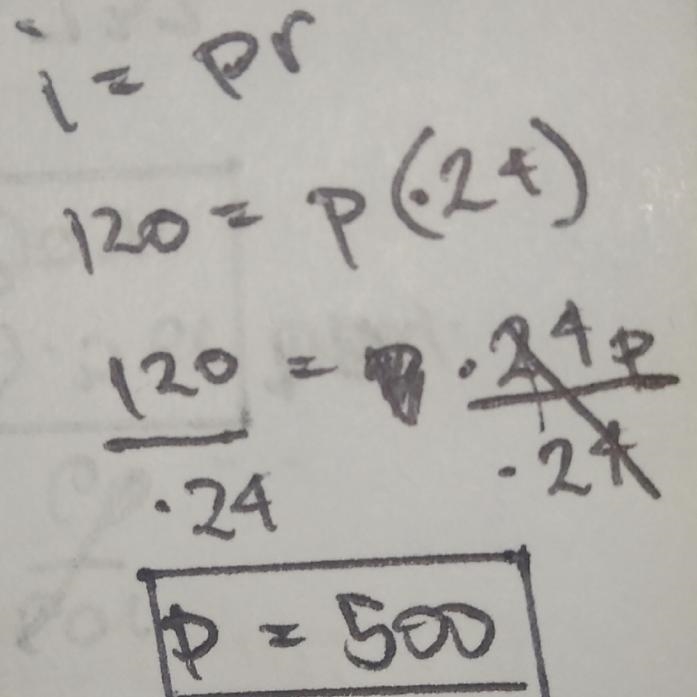 i = pr
120 = p(.24)
120/.24 = .24p/.24
p = 500